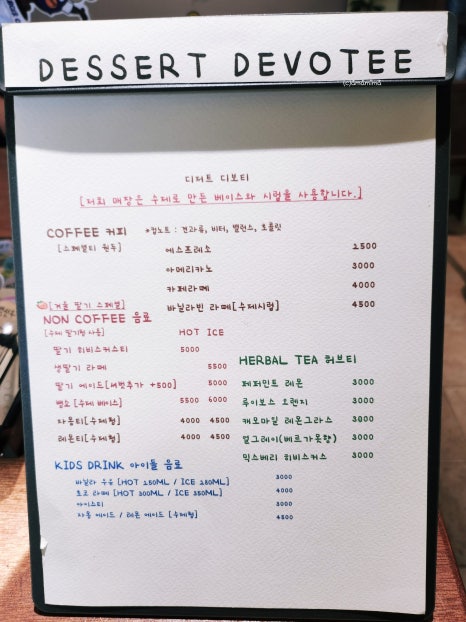 DESSERT DEVOTEE
(c)amamima
디저트 디보티
[저희 매장은 수제로 만든 베이스와 시럽을 사용합니다.]
COFFEE 커피 *컵노트 : 견과류, 비터, 밸런스, 초콜릿
[스페셜티 원두]
에스프레소 2500
아메리카노 3000
카페라떼 4000
바닐라빈 라떼[수제시럽] 4500
[겨울 딸기 스페셜]
NON COFFEE 음료
[수제 딸기청 사용] HOT ICE
딸기 히비스커스티 5000
생딸기 라떼 5500
딸기 에이드[샤벳추가 +500] 5000
뱅쇼 [수제 베이스] 5500 6000
자몽티[수제청] 4000 4500
레몬티[수제청] 4000 4500
HERBAL TEA 허브티
페퍼민트 레몬 3000
루이보스 오렌지 3000
캐모마일 레몬그라스 3000
얼그레이(베르가못향) 3000
믹스베리 히비스커스 3000
KIDS DRINK 아이들 음료
바닐라 우유 [HOT 250ML / ICE 280ML] 3000
초코 라떼 [HOT 300ML / ICE 350ML] 4000
아이스티 3000
자몽 에이드 / 레몬 에이드 [수제청] 4500